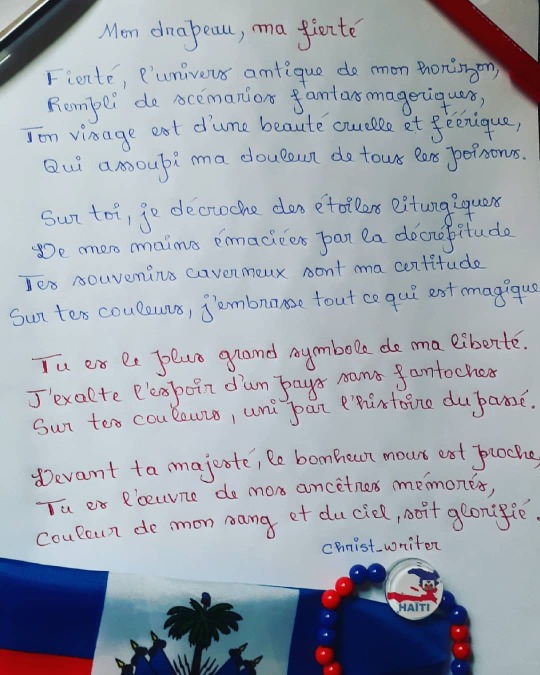 Mon drapeau, ma fierté
Fierté, l'univers antique de mon horizon,
Rempli de scénarios fantasmagoriques,
Ton visage est d'une beauté cruelle et féérique,
Qui assoupi ma douleur de tous les poisons.
Sur toi, je décroche des étoiles liturgiques
De mes mains émaciées par la décrépitude
Tes souvenirs caverneux sont ma certitude
Sur tes couleurs, j'embrasse tout ce qui est magique
Tu es le plus grand symbole de ma liberté.
J'exalte l'espoir d'un pays sans fantoches
Sur tes couleurs, uni par l'histoire du passé.
Devant ta majesté, le bonheur nous est proche,
Tu es l'œuvre de nos ancêtres mémorés,
Couleur de mon sang et du ciel, soit glorifié.
Christ_writer
HAÏTI